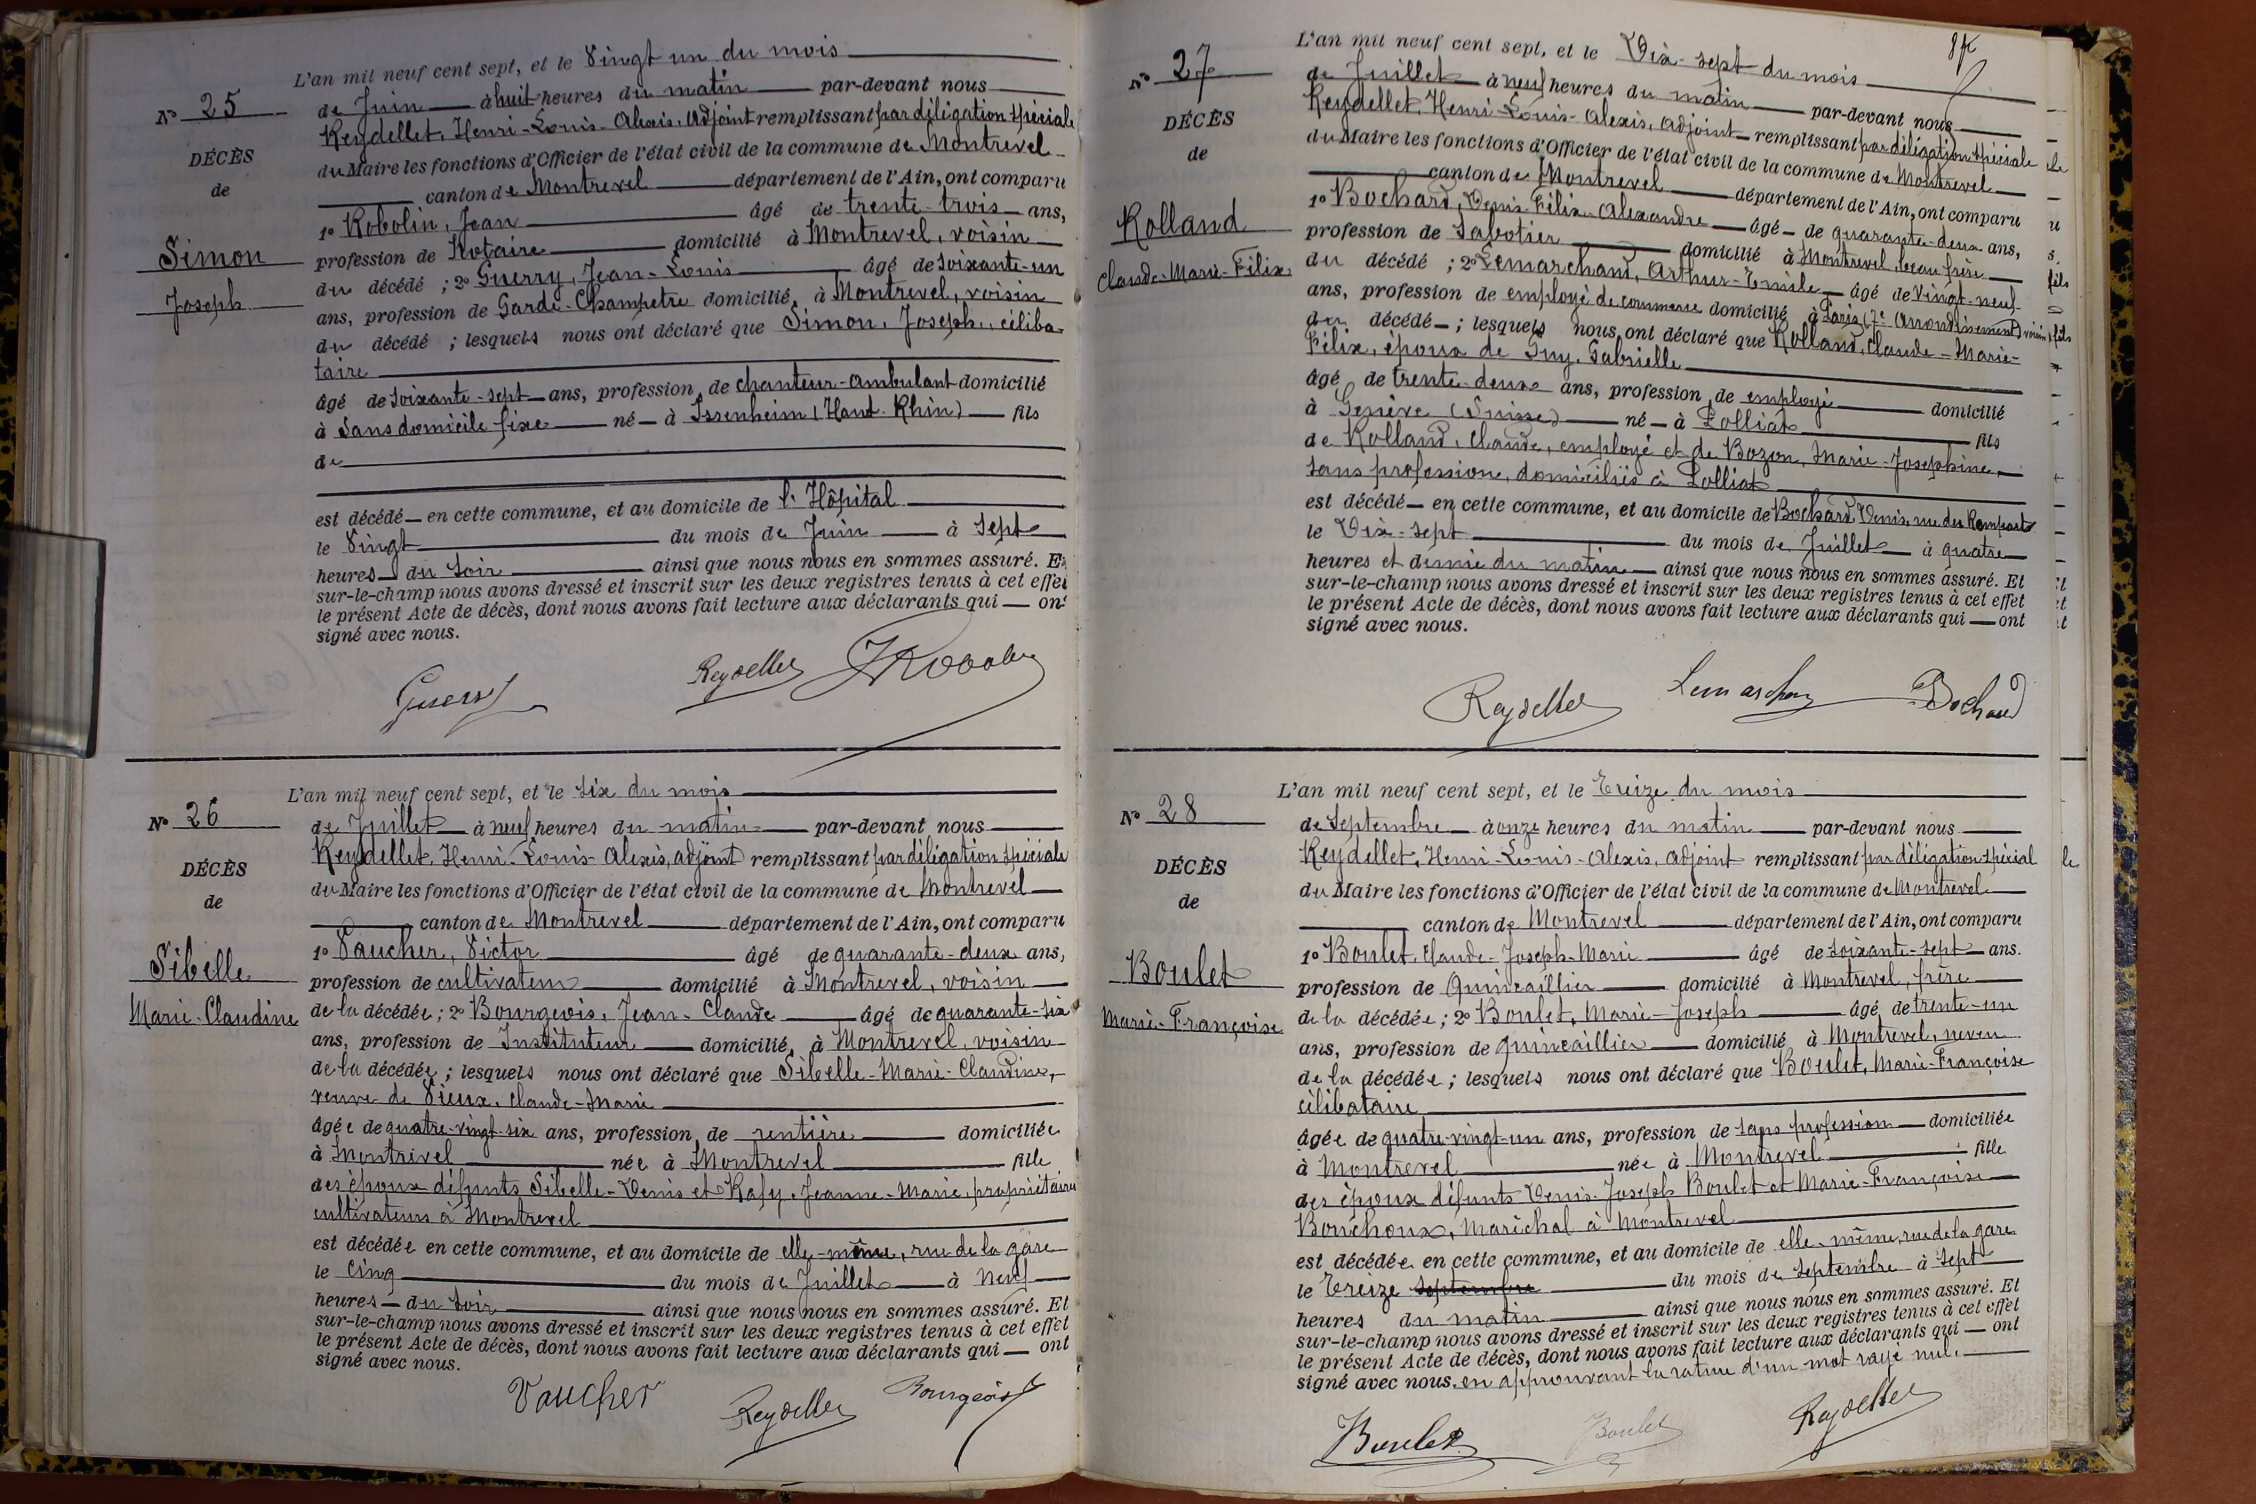 L'an mil neuf cent sept, et le Vingt un du mois
N° 25
de Juin à huit heures du matin par-devant nous
Reydellet, Henri-Louis-Alexis, Adjoint remplissant par délégation spéciale
DÉCÈS
du Maire les fonctions d'Officier de l'état civil de la commune de Montrevel
de
canton de Montrevel département de l'Ain, ont comparu
1° Robolin, Jean âgé de trente-trois ans,
Simon
profession de Notaire domicilié à Montrevel, voisin
Joseph
du décédé ; 2° Guerry, Jean-Louis âgé de soixante-un
ans, profession de Garde-Champetre domicilié à Montrevel, voisin
du décédé ; lesquels nous ont déclaré que Simon, Joseph, céliba-
taire
âgé de soixante-sept ans, profession de chanteur-ambulant domicilié
à sans domicile fixe né à Issenheim (Haut-Rhin) fils
de
est décédé en cette commune, et au domicile de l'Hôpital
le Vingt du mois de Juin à sept
heures du soir ainsi que nous nous en sommes assuré. Et
sur-le-champ nous avons dressé et inscrit sur les deux registres tenus à cet effet
le présent Acte de décès, dont nous avons fait lecture aux déclarants qui ont
signé avec nous.
Guerry Reydellet JRobolin
L'an mil neuf cent sept, et le six du mois
N° 26
de Juillet à neuf heures du matin par-devant nous
Reydellet, Henri-Louis-Alexis, adjoint remplissant par délégation spéciale
DÉCÈS
du Maire les fonctions d'Officier de l'état civil de la commune de Montrevel
de
canton de Montrevel département de l'Ain, ont comparu
1° Vaucher, Victor âgé de quarante-deux ans,
Sibelle
profession de cultivateur domicilié à Montrevel, voisin
Marie-Claudine
de la décédée ; 2° Bourgeois, Jean-Claude âgé de quarante-six
ans, profession de Instituteur domicilié à Montrevel, voisin
de la décédée ; lesquels nous ont déclaré que Sibelle-Marie-Claudine,
veuve de Vieux, Claude-Marie
âgée de quatre-vingt-six ans, profession de rentière domiciliée
à Montrevel née à Montrevel fille
des époux défunts Sibelle-Denis et Rafy, Jeanne-Marie, propriétaires
cultivateurs à Montrevel
est décédée en cette commune, et au domicile de elle-même, rue de la gare
le cinq du mois de Juillet à neuf
heures du soir ainsi que nous nous en sommes assuré. Et
sur-le-champ nous avons dressé et inscrit sur les deux registres tenus à cet effet
le présent Acte de décès, dont nous avons fait lecture aux déclarants qui ont
signé avec nous.
Vaucher Reydellet Bourgeois
L'an mil neuf cent sept, et le Dix-sept du mois
N° 27
de Juillet à neuf heures du matin par-devant nous
Reydellet, Henri-Louis-Alexis, adjoint remplissant par délégation spéciale
DÉCÈS
du Maire les fonctions d'Officier de l'état civil de la commune de Montrevel
de
canton de Montrevel département de l'Ain, ont comparu
1° Bochard, Denis-Félix-Alexandre âgé de quarante-deux ans,
Rolland
profession de Sabotier domicilié à Montrevel, beau frère
Claude-Marie-Félix
du décédé ; 2° Lemarchand, Arthur-Emile âgé de vingt-neuf
ans, profession de employé de commerce domicilié à Paris (7e Arrondissement) voisin
du décédé ; lesquels nous ont déclaré que Rolland, Claude-Marie-
Félix, époux de Guy, Gabrielle
âgé de trente-deux ans, profession de employé domicilié
à Genève (Suisse) né à Polliat fils
de Rolland, Claude, employé et de Bozon, Marie-Josephine,
sans profession, domiciliés à Polliat
est décédé en cette commune, et au domicile de Bochard, Denis, rue des Remparts
le Dix-sept du mois de Juillet à quatre
heures et demie du matin ainsi que nous nous en sommes assuré. Et
sur-le-champ nous avons dressé et inscrit sur les deux registres tenus à cet effet
le présent Acte de décès, dont nous avons fait lecture aux déclarants qui ont
signé avec nous.
Reydellet Lemarchand Bochard
L'an mil neuf cent sept, et le Treize du mois
N° 28
de Septembre à onze heures du matin par-devant nous
Reydellet, Henri-Louis-Alexis, adjoint remplissant par délégation spécial
DÉCÈS
du Maire les fonctions d'Officier de l'état civil de la commune de Montrevel
de
canton de Montrevel département de l'Ain, ont comparu
1° Boulet, Claude-Joseph-Marie âgé de soixante-sept ans.
Boulet
profession de Quincaillier domicilié à Montrevel, frère
Marie-Françoise
de la décédée ; 2° Boulet, Marie-Joseph âgé de trente-un
ans, profession de quincaillier domicilié à Montrevel, neveu
de la décédée ; lesquels nous ont déclaré que Boulet, Marie-Françoise
célibataire
âgée de quatre-vingt-un ans, profession de sans profession domiciliée
à Montrevel née à Montrevel fille
des époux défunts Denis-Joseph Boulet et Marie-Françoise
Bouchoux, Maréchal à Montrevel
est décédée en cette commune, et au domicile de elle-même, rue de la gare
le Treize septembre du mois de Septembre à sept
heures du matin ainsi que nous nous en sommes assuré. Et
sur-le-champ nous avons dressé et inscrit sur les deux registres tenus à cet effet
le présent Acte de décès, dont nous avons fait lecture aux déclarants qui ont
signé avec nous. en approuvant la rature d'un mot rayé nul.
Boulet Boulet Reydellet